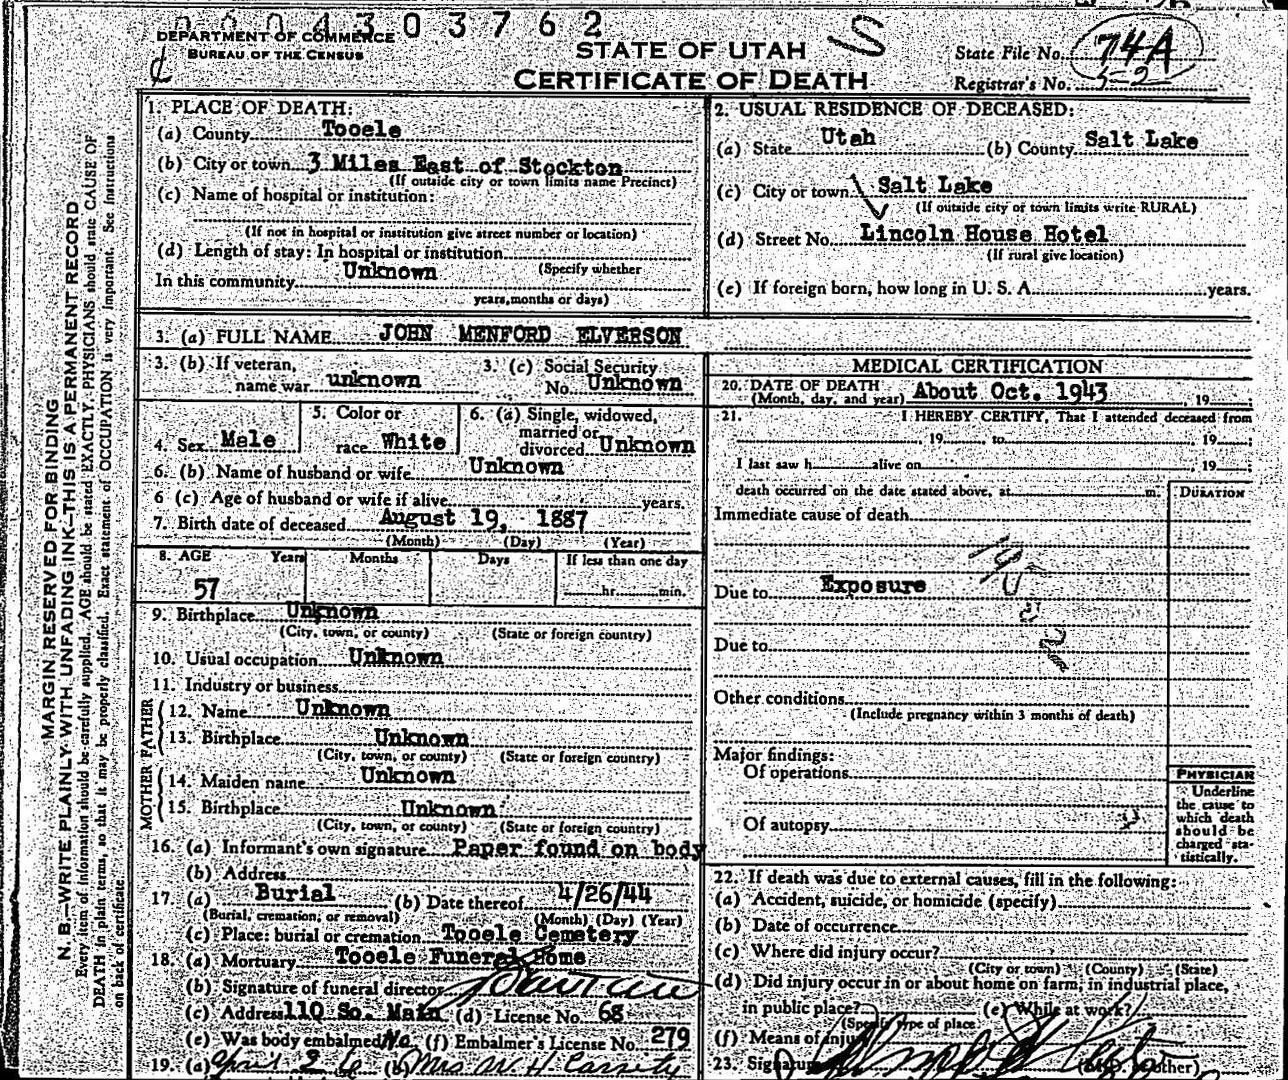 0 6 0 4 3 0 3 7 6 2
DEPARTMENT OF COMMERCE
BUREAU OF THE CENSUS
STATE OF UTAH
CERTIFICATE OF DEATH
State File No. 74A
Registrar's No. 5-2
MARGIN RESERVED FOR BINDING
N. B.—WRITE PLAINLY WITH UNFADING INK—THIS IS A PERMANENT RECORD
Every item of information should be carefully supplied. AGE should be stated EXACTLY. PHYSICIANS should state CAUSE OF
DEATH in plain terms, so that it may be properly classified. Exact statement of OCCUPATION is very important. See Instructions
on back of certificate
1. PLACE OF DEATH:
(a) County Tooele
(b) City or town 3 Miles East of Stockton
(If outside city or town limits name Precinct)
(c) Name of hospital or institution:
(If not in hospital or institution give street number or location)
(d) Length of stay: In hospital or institution
(Specify whether
In this community Unknown
years, months or days)
2. USUAL RESIDENCE OF DECEASED:
(a) State Utah (b) County Salt Lake
(c) City or town Salt Lake
(If outside city or town limits write RURAL)
(d) Street No. Lincoln House Hotel
(If rural give location)
(e) If foreign born, how long in U. S. A. years.
3. (a) FULL NAME JOHN MENFORD ELVERSON
3. (b) If veteran, name war unknown
3. (c) Social Security No. Unknown
4. Sex Male
5. Color or race White
6. (a) Single, widowed, married or divorced Unknown
6. (b) Name of husband or wife Unknown
6 (c) Age of husband or wife if alive years.
7. Birth date of deceased August 19, 1887
(Month) (Day) (Year)
8. AGE Years Months Days If less than one day
57 hr. min.
9. Birthplace Unknown
(City, town, or county) (State or foreign country)
10. Usual occupation Unknown
11. Industry or business
FATHER
12. Name Unknown
13. Birthplace Unknown
(City, town, or county) (State or foreign country)
MOTHER
14. Maiden name Unknown
15. Birthplace Unknown
(City, town, or county) (State or foreign country)
16. (a) Informant's own signature Paper found on body
(b) Address
17. (a) Burial (b) Date thereof 4/26/44
(Burial, cremation, or removal) (Month) (Day) (Year)
(c) Place: burial or cremation Tooele Cemetery
18. (a) Mortuary Tooele Funeral Home
(b) Signature of funeral director
(c) Address 110 So. Main (d) License No. 68
(e) Was body embalmed No (f) Embalmer's License No. 279
19. (a) April 26 (b) Mrs W. H. Cassity
MEDICAL CERTIFICATION
20. DATE OF DEATH
(Month, day, and year) About Oct. 1943, 19
21. I HEREBY CERTIFY, That I attended deceased from
, 19 to , 19 ;
I last saw h alive on , 19 ;
death occurred on the date stated above, at m.
DURATION
Immediate cause of death
Due to Exposure
Due to
Other conditions
(Include pregnancy within 3 months of death)
Major findings:
Of operations
Of autopsy
PHYSICIAN
Underline
the cause to
which death
should be
charged sta-
tistically.
22. If death was due to external causes, fill in the following:
(a) Accident, suicide, or homicide (specify)
(b) Date of occurrence
(c) Where did injury occur?
(City or town) (County) (State)
(d) Did injury occur in or about home on farm, in industrial place,
in public place? (e) While at work?
(Specify type of place
(f) Means of injury
23. Signature